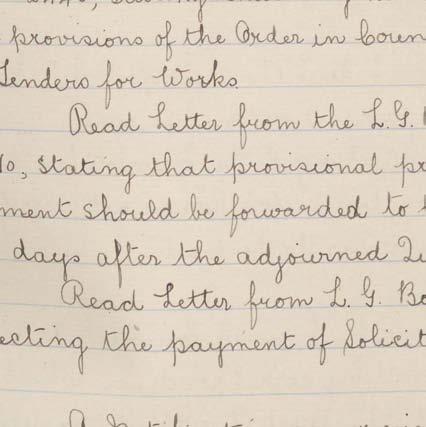 provisions of the Order in Coun
Tenders for Works.
Read Letter from the L. G.
10, stating that provisional pr
ment should be forwarded to t
days after the adjourned Qu
Read Letter from L. G. Bo
ecting the payment of Solicit